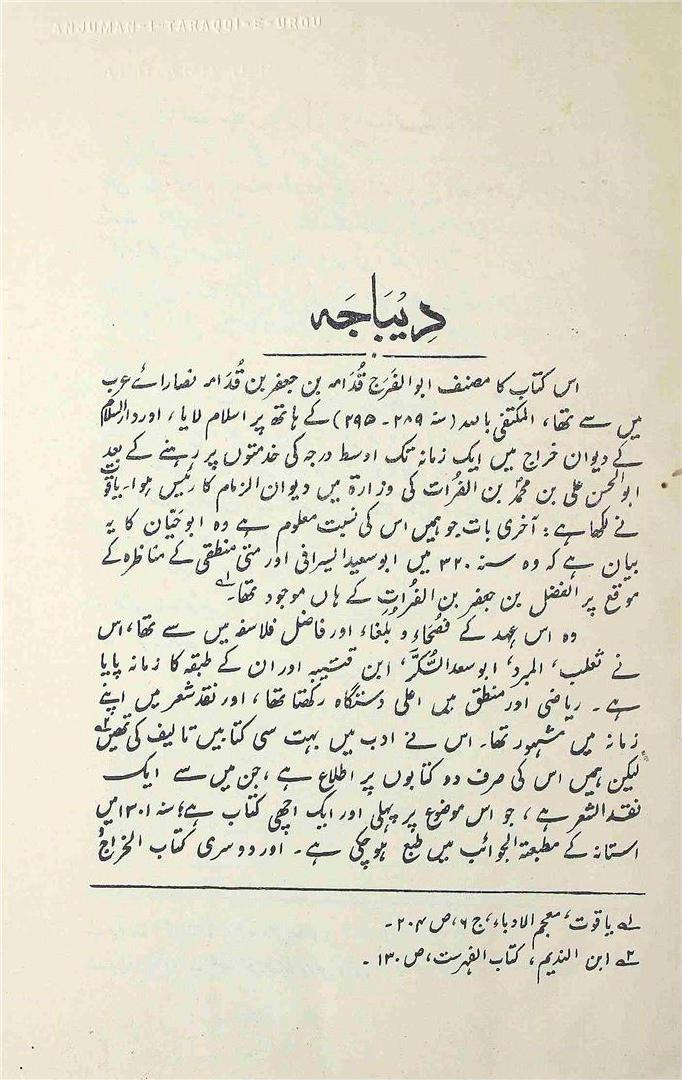 ANJUMAN-I-TARAQQI-E-URDU
دِیْبَاجَہ
اس کتاب کا مصنف ابو الفَرَج قُدَامہ بن جعفر بن قُدَامہ نصارائے عرب
میں سے تھا، المکتفی باللہ (سنہ ۲۸۹ - ۲۹۵) کے ہاتھ پر اسلام لایا، اور دارالسلام
کے دیوان خراج میں ایک زمانہ تک اوسط درجہ کی خدمتوں پر رہنے کے بعد
ابو الحسن علی بن محمد بن الفُرات کی وزارۃ میں دیوان الزمام کا رئیس ہوا۔ یاقوت
نے لکھا ہے: آخری بات جو ہمیں اس کی نسبت معلوم ہے وہ ابو حَیّان کا یہ
بیان ہے کہ وہ سنہ ۳۲۰ میں ابو سعید السیرافی اور متیٰ منطقی کے مناظرہ کے
موقع پر الفضل بن جعفر بن الفُرات کے ہاں موجود تھا۔ ۱؎
وہ اس عہد کے فُصَحاء و بُلَغاء اور فاضل فلاسفہ میں سے تھا، اس
نے ثعلب، المبرد، ابو سعد السُّکَّر، ابن قتیبہ اور ان کے طبقہ کا زمانہ پایا
ہے۔ ریاضی اور منطق میں اعلی دستگاہ رکھتا تھا، اور نقد شعر میں اپنے
زمانہ میں مشہور تھا۔ اس نے ادب میں بہت سی کتابیں تالیف کی تھیں ۲؎
لیکن ہمیں اس کی صرف دو کتابوں پر اطلاع ہے، جن میں سے ایک
نقد الشعر ہے، جو اس موضوع پر پہلی اور ایک اچھی کتاب ہے؛ سنہ ۱۳۰۱ میں
استانہ کے مطبعۃ الجوائب میں طبع ہو چکی ہے۔ اور دوسری کتاب الخراج
۱؎ یاقوت، معجم الادباء، ج ۶، ص ۲۰۴۔
۲؎ ابن الندیم، کتاب الفہرست، ص ۱۳۰۔